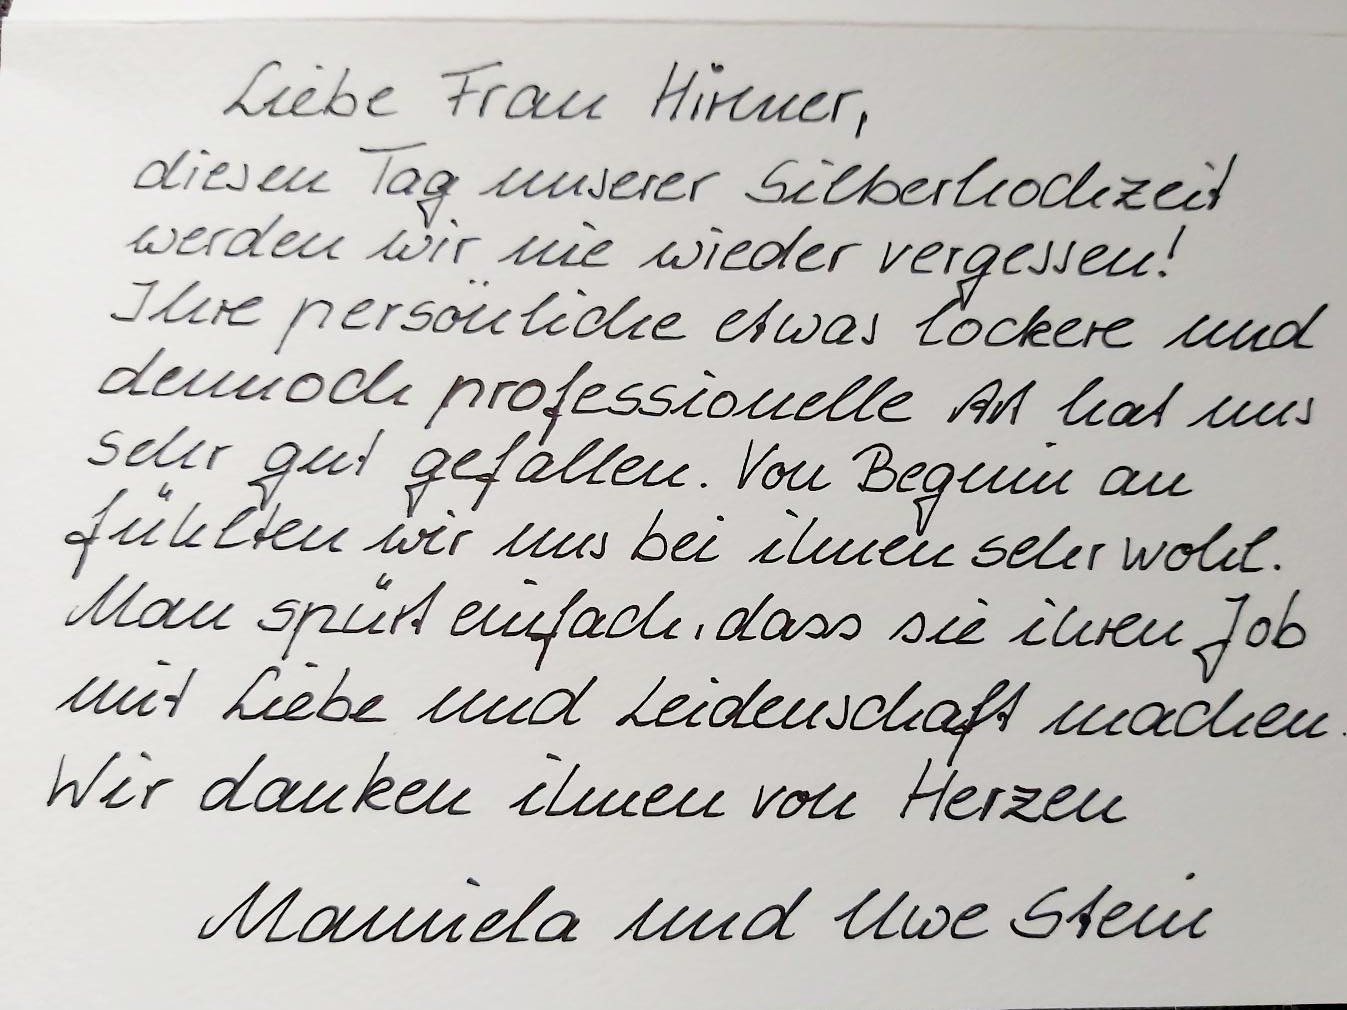 Liebe Frau Hirmer,
diesen Tag unserer Silberhochzeit
werden wir nie wieder vergessen!
Ihre persönliche etwas lockere und
dennoch professionelle Art hat uns
sehr gut gefallen. Von Beginn an
fühlten wir uns bei ihnen sehr wohl.
Man spürt einfach, dass sie ihren Job
mit Liebe und Leidenschaft machen.
Wir danken ihnen von Herzen
Manuela und Uwe Stein